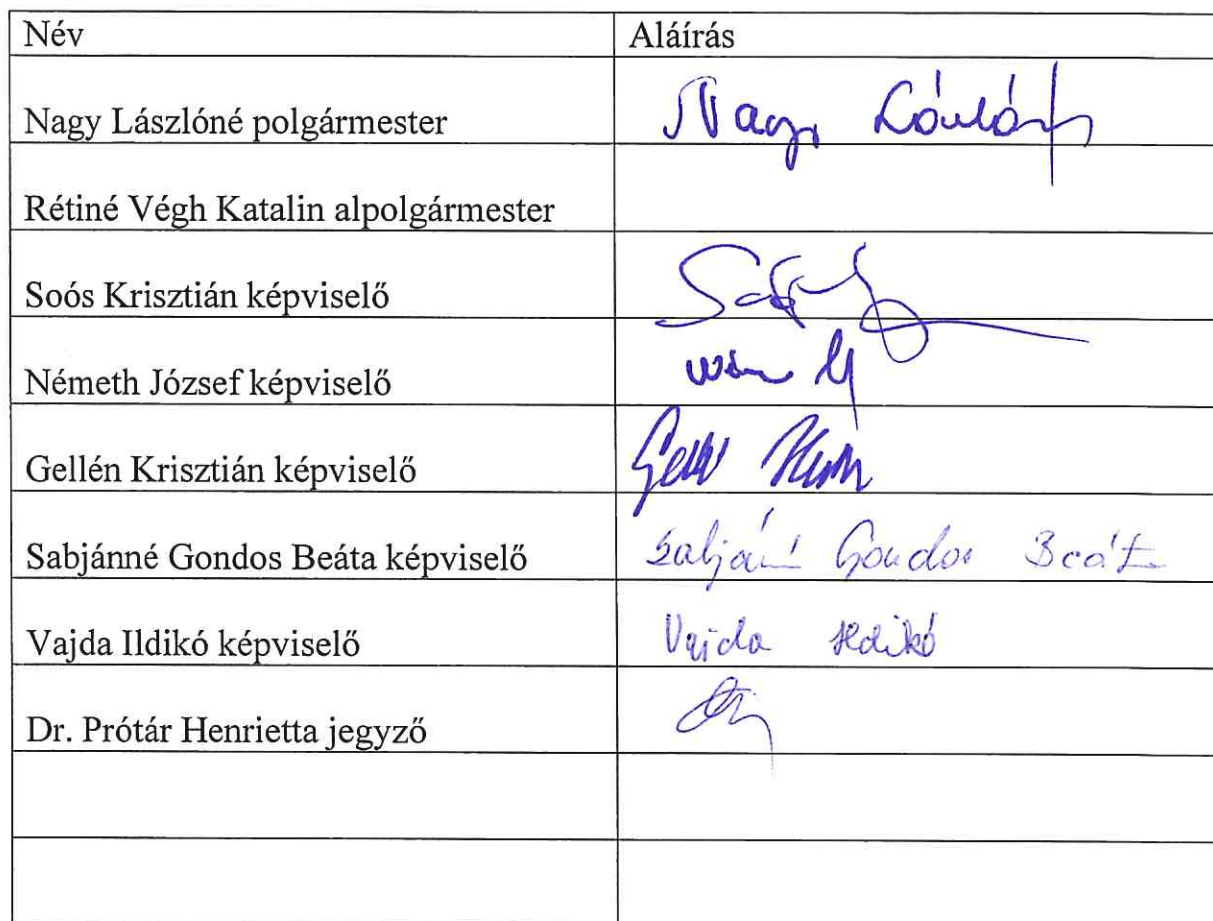 Név Aláírás
Nagy Lászlóné polgármester Nagy
Rétiné Végh Katalin alpolgármester
Soós Krisztián képviselő
Németh József képviselő
Gellén Krisztián képviselő
Sabjánné Gondos Beáta képviselő Gondos Beáta
Vajda Ildikó képviselő Vajda Ildikó
Dr. Prótár Henrietta jegyző